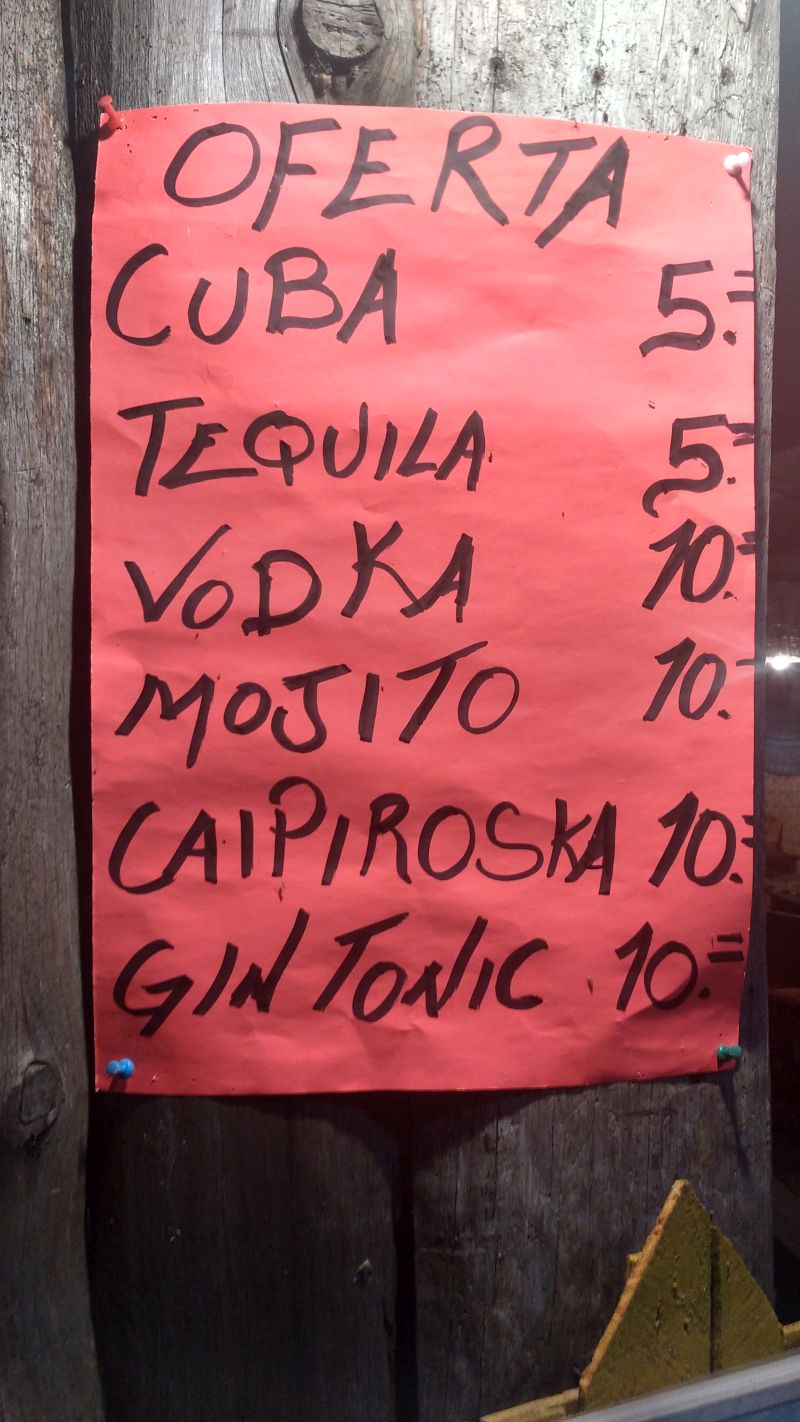 OFERTA
CUBA 5.=
TEQUILA 5.=
VODKA 10.=
MOJITO 10.-
CAIPIROSKA 10.=
GIN TONIC 10.=